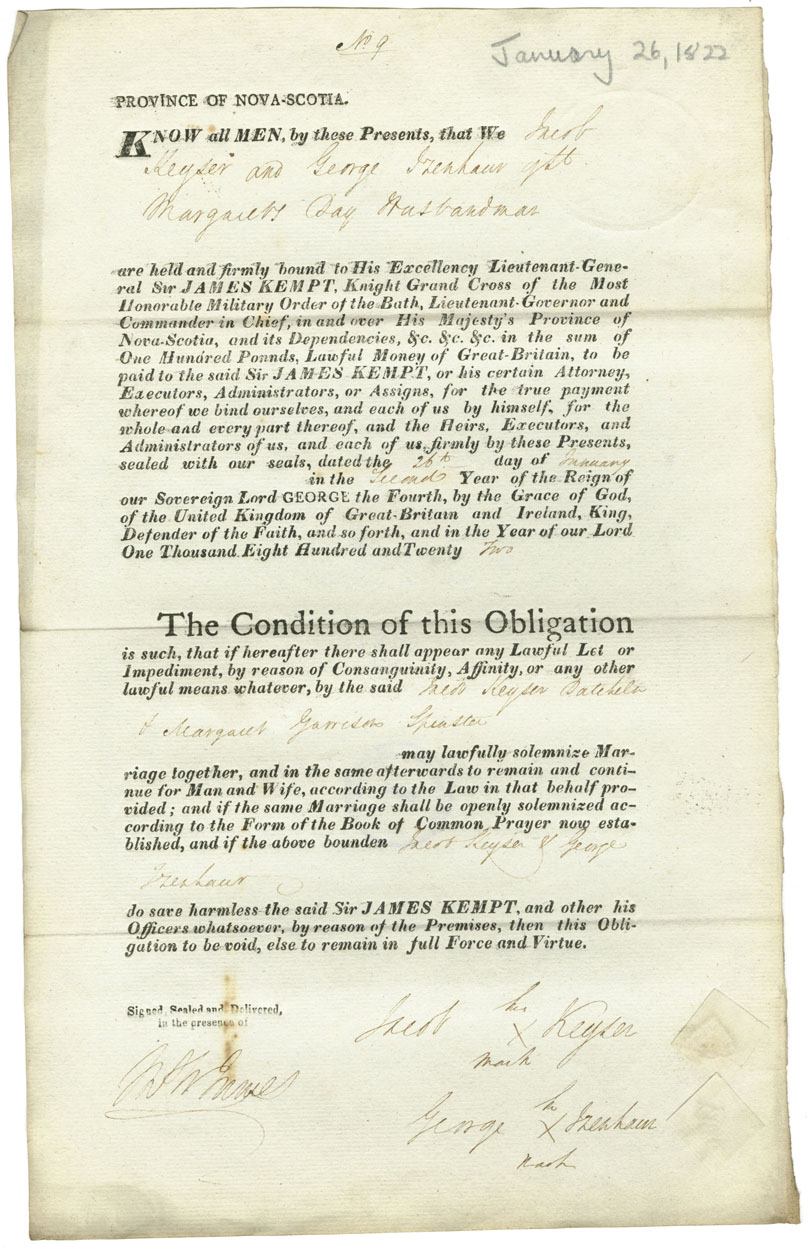 No 9
January 26, 1822
PROVINCE OF NOVA-SCOTIA.
KNOW all MEN, by these Presents, that We Jacob
Keyser and George Izenhaur of St
Margarets Bay Husbandman
are held and firmly bound to His Excellency Lieutenant-Gene-
ral Sir JAMES KEMPT, Knight Grand Cross of the Most
Honorable Military Order of the Bath, Lieutenant-Governor and
Commander in Chief, in and over His Majesty's Province of
Nova-Scotia, and its Dependencies, &c. &c. &c. in the sum of
One Hundred Ponnds, Lawful Money of Great-Britain, to be
paid to the said Sir JAMES KEMPT, or his certain Attorney,
Executors, Administrators, or Assigns, for the true payment
whereof we bind ourselves, and each of us by himself, for the
whole and every part thereof, and the Heirs, Executors, and
Administrators of us, and each of us, firmly by these Presents,
sealed with our seals, dated the 26th day of January
in the Second Year of the Reign of
our Sovereign Lord GEORGE the Fourth, by the Grace of God,
of the United Kingdom of Great-Britain and Ireland, King,
Defender of the Faith, and so forth, and in the Year of our Lord
One Thousand Eight Hundred and Twenty Two
The Condition of this Obligation
is such, that if hereafter there shall appear any Lawful Let or
Impediment, by reason of Consanguinity, Affinity, or any other
lawful means whatever, by the said Jacob Keyser Batchelor
& Margaret Garrison Spinster
may lawfully solemnize Mar-
riage together, and in the same afterwards to remain and conti-
nue for Man and Wife, according to the Law in that behalf pro-
vided; and if the same Marriage shall be openly solemnized ac-
cording to the Form of the Book of Common Prayer now esta-
blished, and if the above bounden Jacob Keyser & George
Izenhaur
do save harmless the said Sir JAMES KEMPT, and other his
Officers whatsoever, by reason of the Premises, then this Obli-
gation to be void, else to remain in full Force and Virtue.
Signed, Sealed and Delivered,
in the presence of
Jacob his X Keyser
mark
George his X Izenhaur
mark